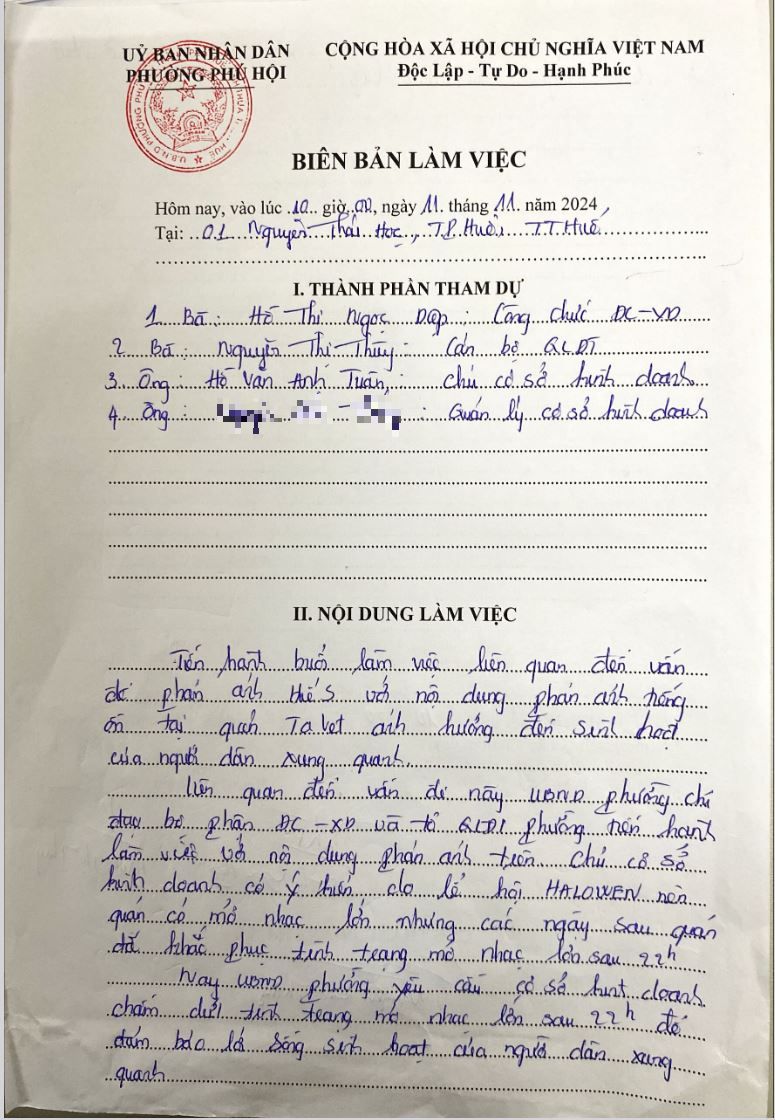 UỶ BAN NHÂN DÂN
PHƯỜNG PHÚ HỘI
CỘNG HÒA XÃ HỘI CHỦ NGHĨA VIỆT NAM
Độc Lập - Tự Do - Hạnh Phúc
BIÊN BẢN LÀM VIỆC
Hôm nay, vào lúc 10 giờ 00, ngày 11 tháng 11 năm 2024,
Tại: 01 Nguyễn Thái Học, T.P. Huế, T.T. Huế
I. THÀNH PHẦN THAM DỰ
1. Bà: Hồ Thị Ngọc Diệp: Công chức ĐC-XD
2. Bà: Nguyễn Thị Thủy: Cán bộ QLĐT
3. Ông: Hồ Văn Anh Tuấn,: chủ cơ sở kinh doanh
4. Ông: : Quản lý cơ sở kinh doanh
II. NỘI DUNG LÀM VIỆC
Tiến hành buổi làm việc liên quan đến vấn
đề phản ánh Huế S với nội dung phản ánh tiếng
ồn tại quán Ta Vet ảnh hưởng đến sinh hoạt
của người dân xung quanh.
Liên quan đến vấn đề này UBND phường chỉ
đạo bộ phận ĐC-XD và tổ QLĐT phường tiến hành
làm việc với nội dung phản ánh trên. Chủ cơ sở
kinh doanh có ý kiến do lễ hội HALOWEN nên
quán có mở nhạc lớn nhưng các ngày sau quán
đã khắc phục tình trạng mở nhạc lớn sau 22h
Nay UBND phường yêu cầu cơ sở kinh doanh
chấm dứt tình trạng mở nhạc lớn sau 22h để
đảm bảo lối sống sinh hoạt của người dân xung
quanh